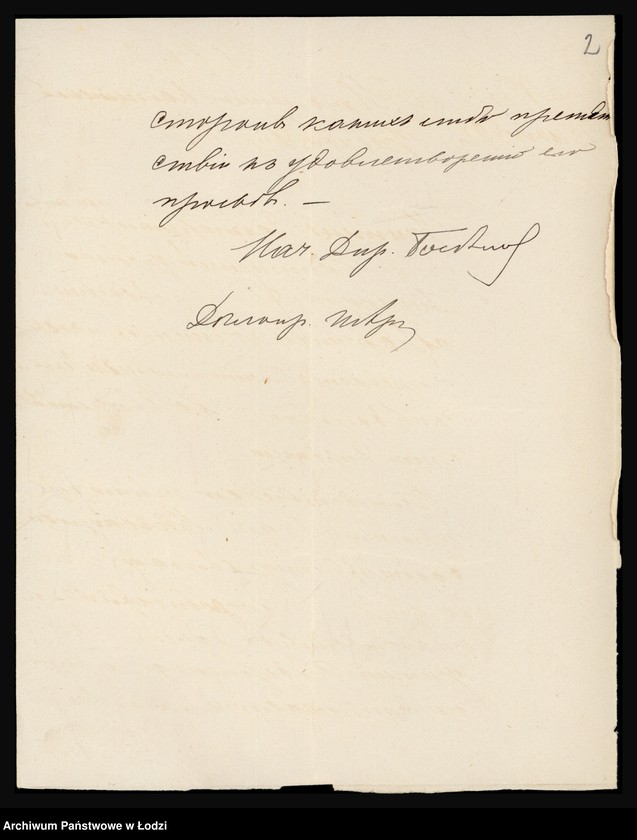 2
стороны какихъ либо препят
ствій къ удовлетворенію его
просьбы. —
Нач. Дир.
Archiwum Państwowe w Łodzi